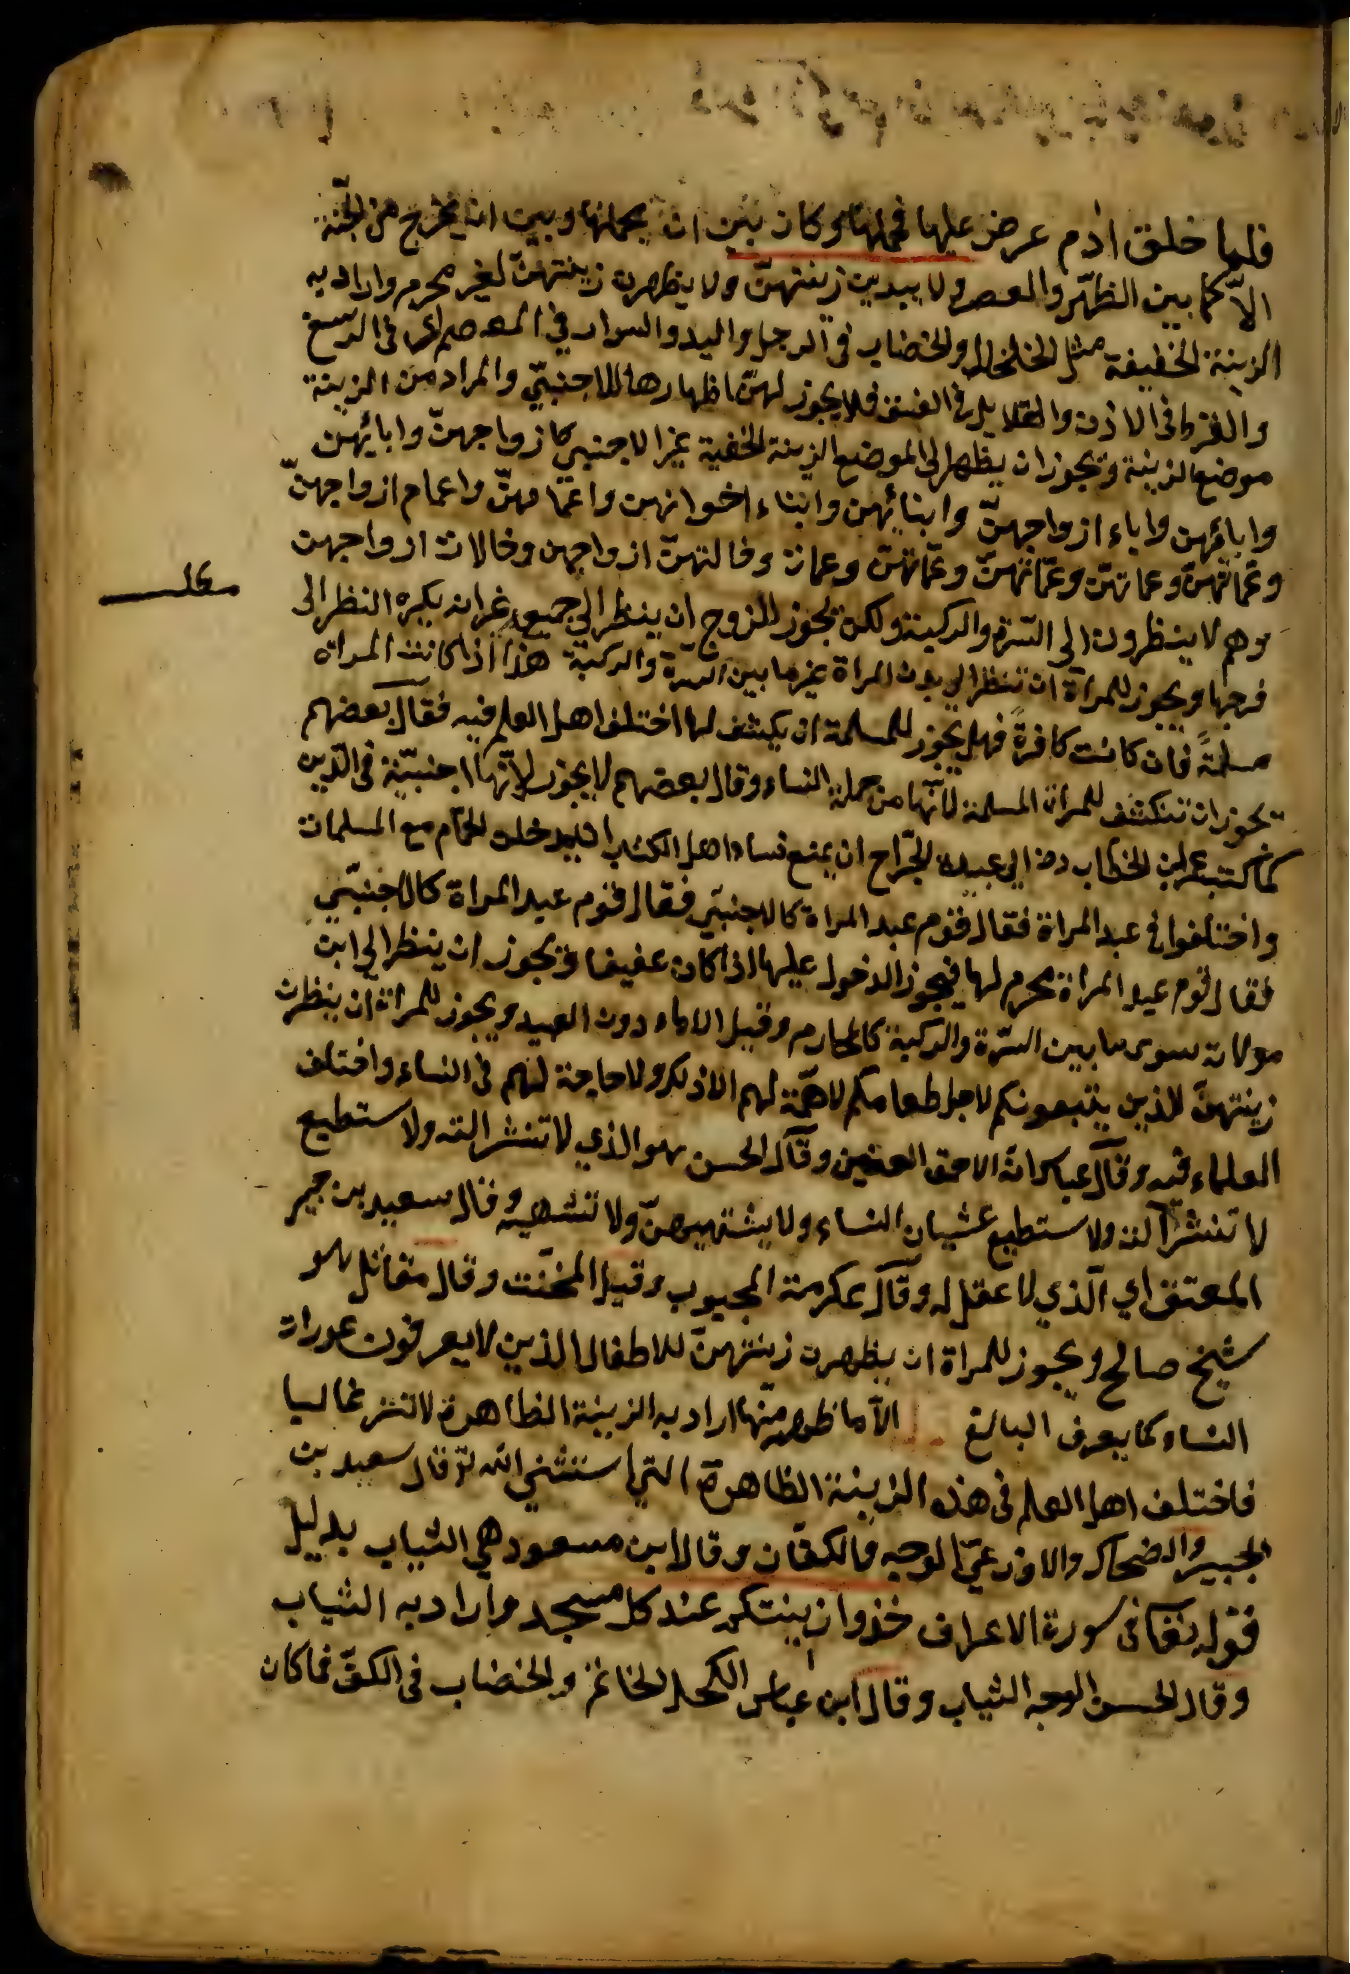 فلما خلق ادم عرض عليها فحملها وكان بين ان يحملها وبين ان يخرج من الجنة
الا كما بين الظهر والعصر ولا يبدين زينتهنّ ولا يظهرن زينتهنّ لغير محرم واراد به
الزينة الخفيفة مثل الخلخال والخضاب في الرجل واليد والسوار في المعصم اى فى الرسغ
والقرط فى الاذن والقلايد فى العنق فلا يجوز لهنّ اظهارها للاجنبيّ والمراد من الزينة
موضع الزينة ويجوز ان يظهر الى الموضع الزينة الخفية غير الاجنبي كازواجهنّ وابائهن
وابائهن واباء ازواجهنّ وابنائهن وابناء اخوانهن واعمامهنّ واعمام ازواجهنّ
وعماتهنّ وعماتهنّ وعمّاتهنّ وعمّاتهنّ وعمات وخالتهنّ ازواجهن وخالات ازواجهن
وهم لا ينظرون الى السّرة والركبة ولكن يجوز للزوج ان ينظر الى جميع غير انه يكره النظر الى
فرجها ويجوز للمرأة ان تنظر الى بدن المراة غير ما بين السّرّة والركبة هذا اذا كانت المراه
مسلمةً فان كانت كافرةً فهل يجوز للمسلمة ان يكشف لها اختلف اهل العلم فيه فقال بعضهم
يجوز ان تنكشف للمراة المسلمة لانّها من جملة النساء وقال بعضهم لا يجوز لانّها اجنبيّة فى الدّين
كما كتب عمر ابن الخطاب رض الى عبيدة الجرّاح ان يمنع نساء اهل الكتاب ان يدخلن الحمّام مع المسلمات
واختلفوا فى عبد المراة فقال قوم عبد المراة كالاجنبيّ فقال قوم عبد المراة كالاجنبّي
فقال قوم عبد المراة محرم لها فيجوز الدخول عليها اذا كان عفيفا ويجوز ان ينظر الى ابن
مولاته سوى ما بين السّرّة والركبة كالمحارم وقيل الاماء دون العبيد ويجوز للمراة ان ينظرن
زينتهنّ للذين يتبعونكم لاجل طعامكم لا همّة لهم الا ذلك ولا حاجة لهم فى النساء واختلف
العلماء فيه وقال عباس انّه الاحمق العنين وقال الحسن هو الذي لا تنشر الته ولا ستطيع
لا تنشر آلته ولا ستطيع غشيان النساء ولا يشتهيهنّ ولا تشهيه وقال سعيد بن جبير
المعتق اي الّذي لا عقل له وقال عكرمة المجبوب وقيل المخنّث وقال مقاتل هو
شيخ صالح ويجوز للمراة ان يظهرن زينتهنّ للاطفال الذين لا يعرفون عورات
النساء كما يعرف البالغ الاّ ما ظهر منها اراد به الزينة الظاهرة لا تنز غاليا
فاختلف اهل العلم فى هذه الزينة الظاهرة التي استثنى الله تع قال سعيد بن
الجبير والضحاك والاوزعيّ الوجه فالكفّان وقال ابن مسعود هي الثياب بدليل
قوله تعالى فى سورة الاعراف خذوا زينتكم عند كل مسجد واراد به الثياب
وقال الحسن الوجه الثياب وقال ابن عباس الكحل الخاتم والخضاب فى الكفّ فما كان